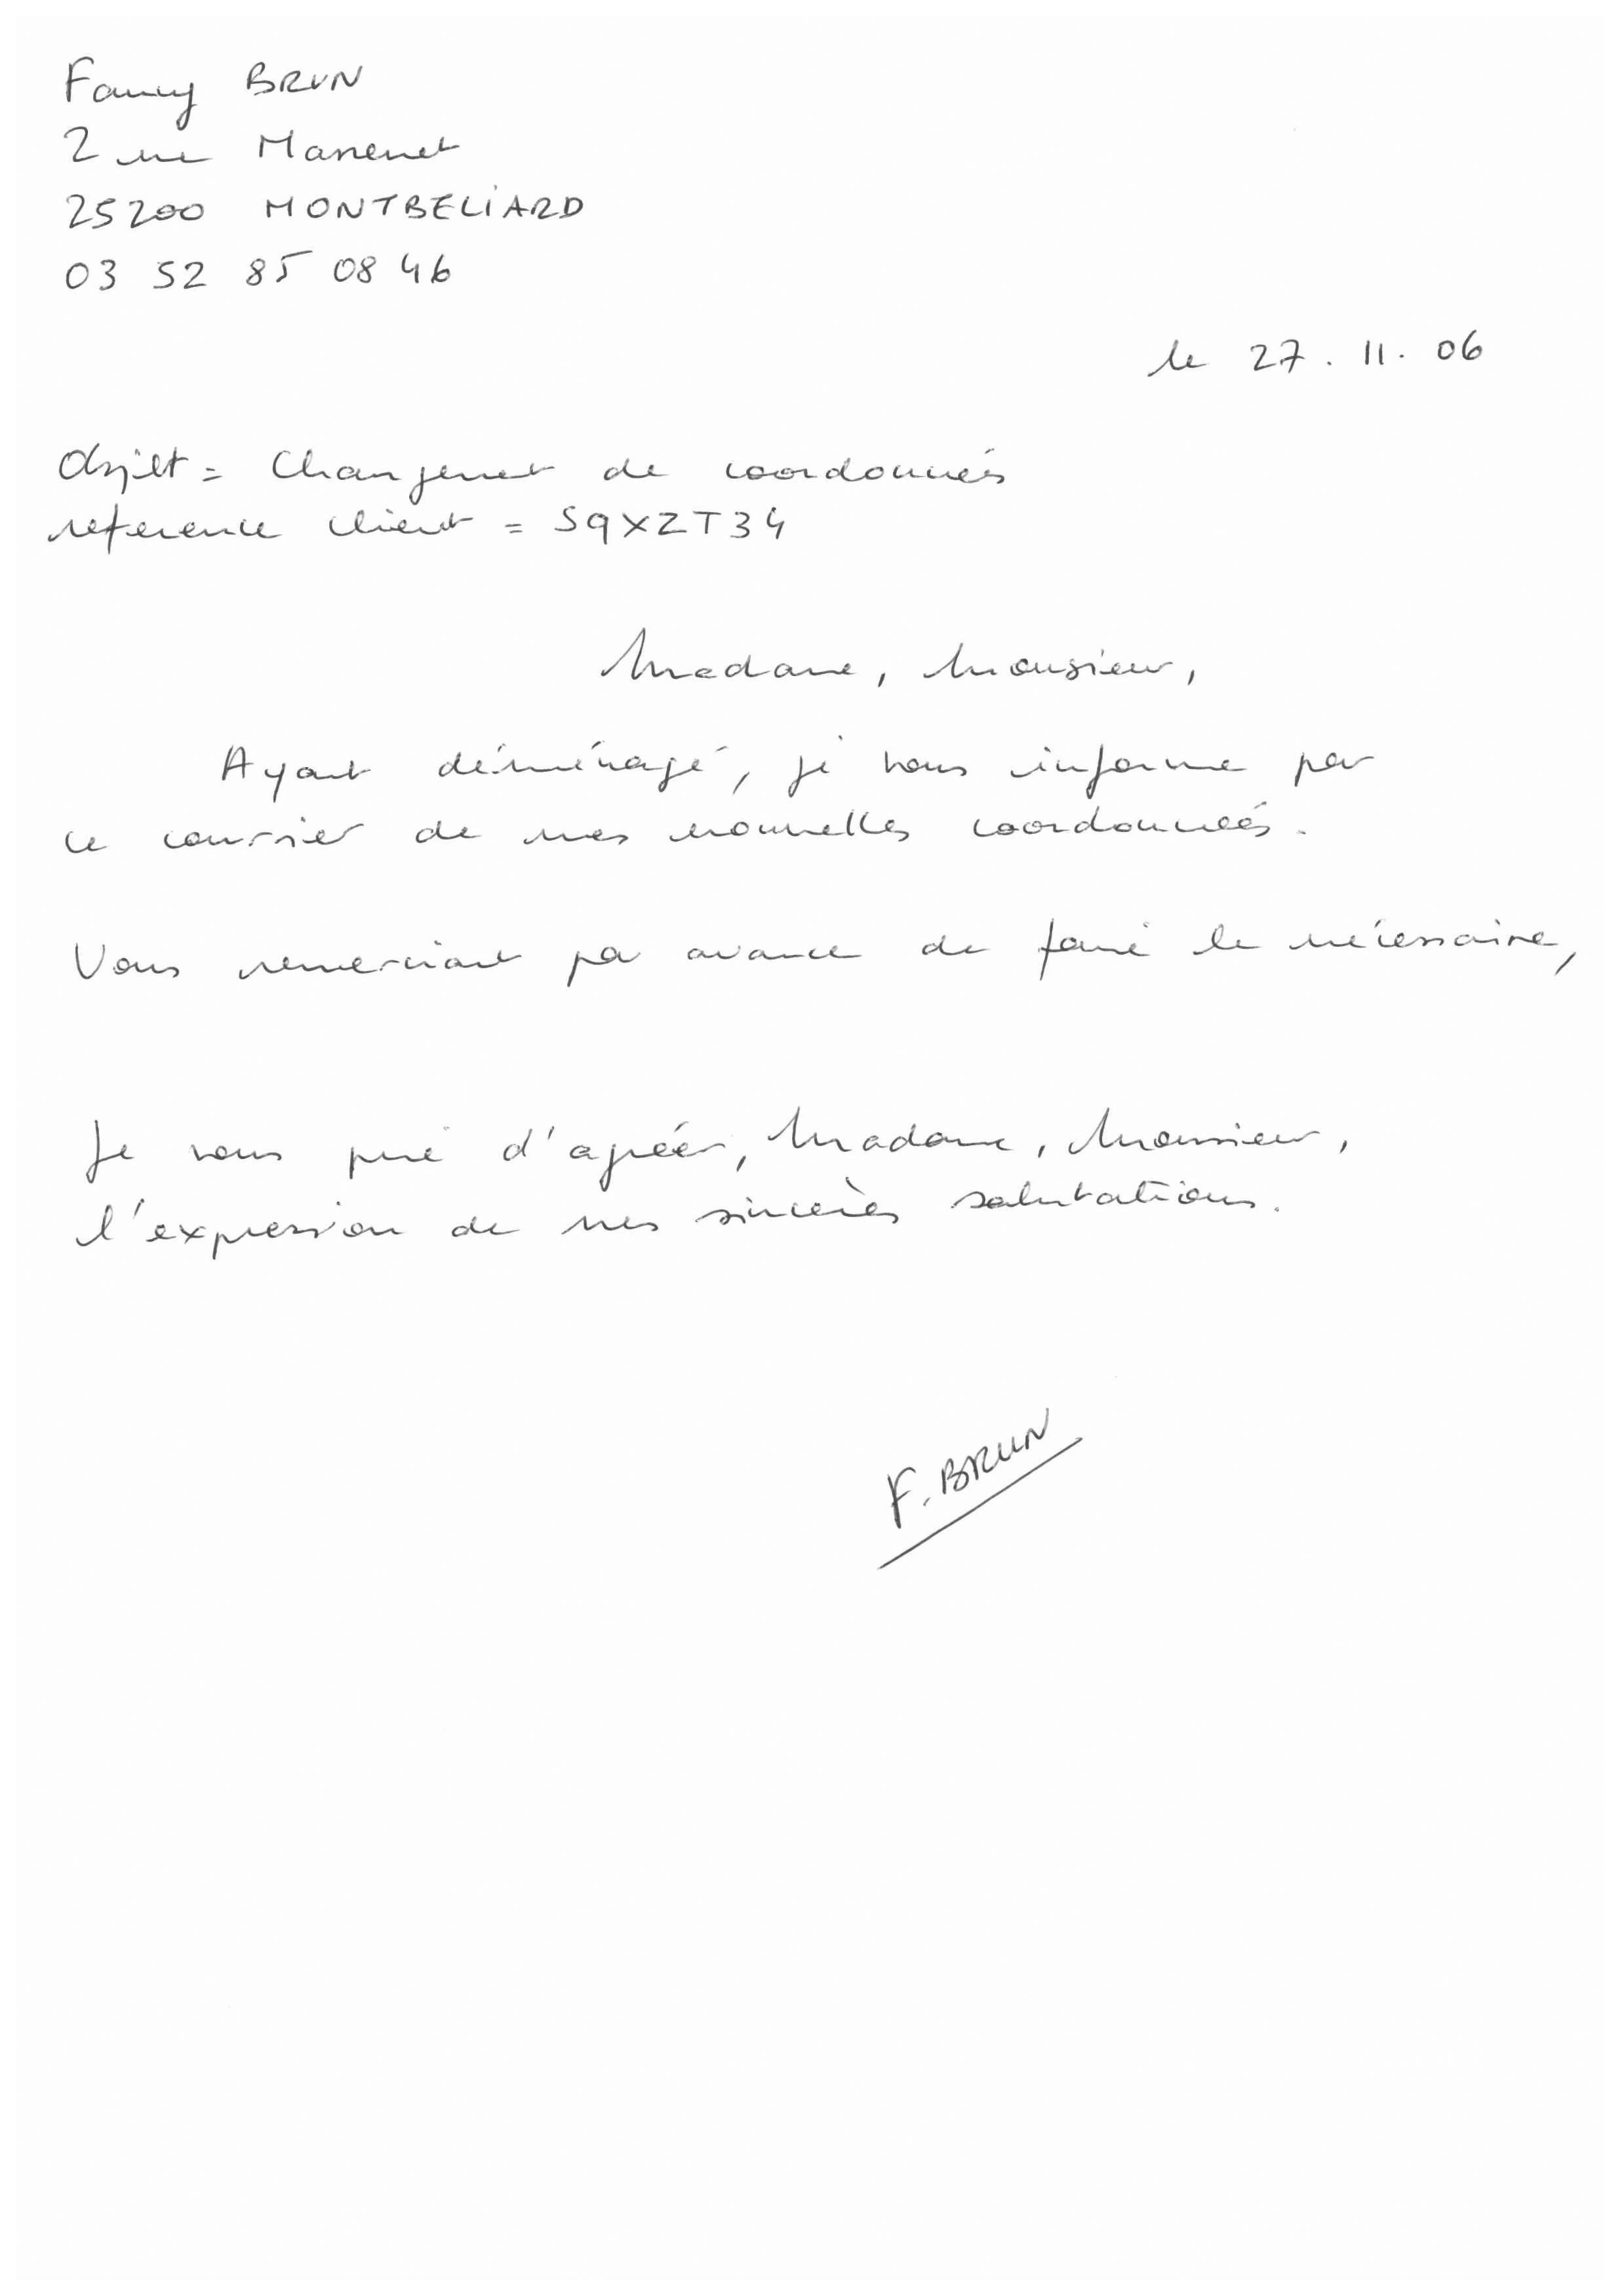 Fanny BRUN
2 rue Massenet
25200 MONTBELIARD
03 52 85 08 46
le 27.11.06
Objet = Changement de coordonnées
reference client = S9XZT34
Madame, Monsieur,
Ayant déménagé, je vous informe par
ce courrier de mes nouvelles coordonnées.
Vous remerciant par avance de faire le nécessaire,
Je vous prie d'agréer, Madame, Monsieur,
l'expression de mes sincères salutations.
F. BRUN